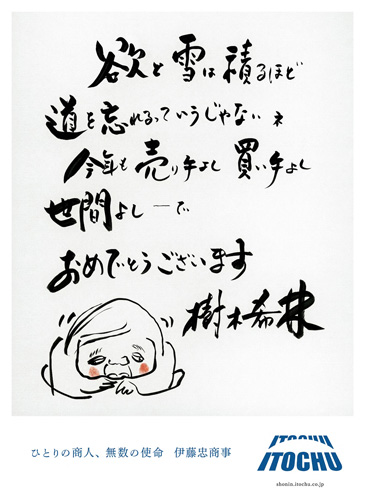 欲と雪は積るほど
道を忘れるっていうじゃないネ
今年も売り手よし 買い手よし
世間よし―で
おめでとうございます
樹木希林
ひとりの商人、無数の使命 伊藤忠商事
ITOCHU
ITOCHU
shonin.itochu.co.jp